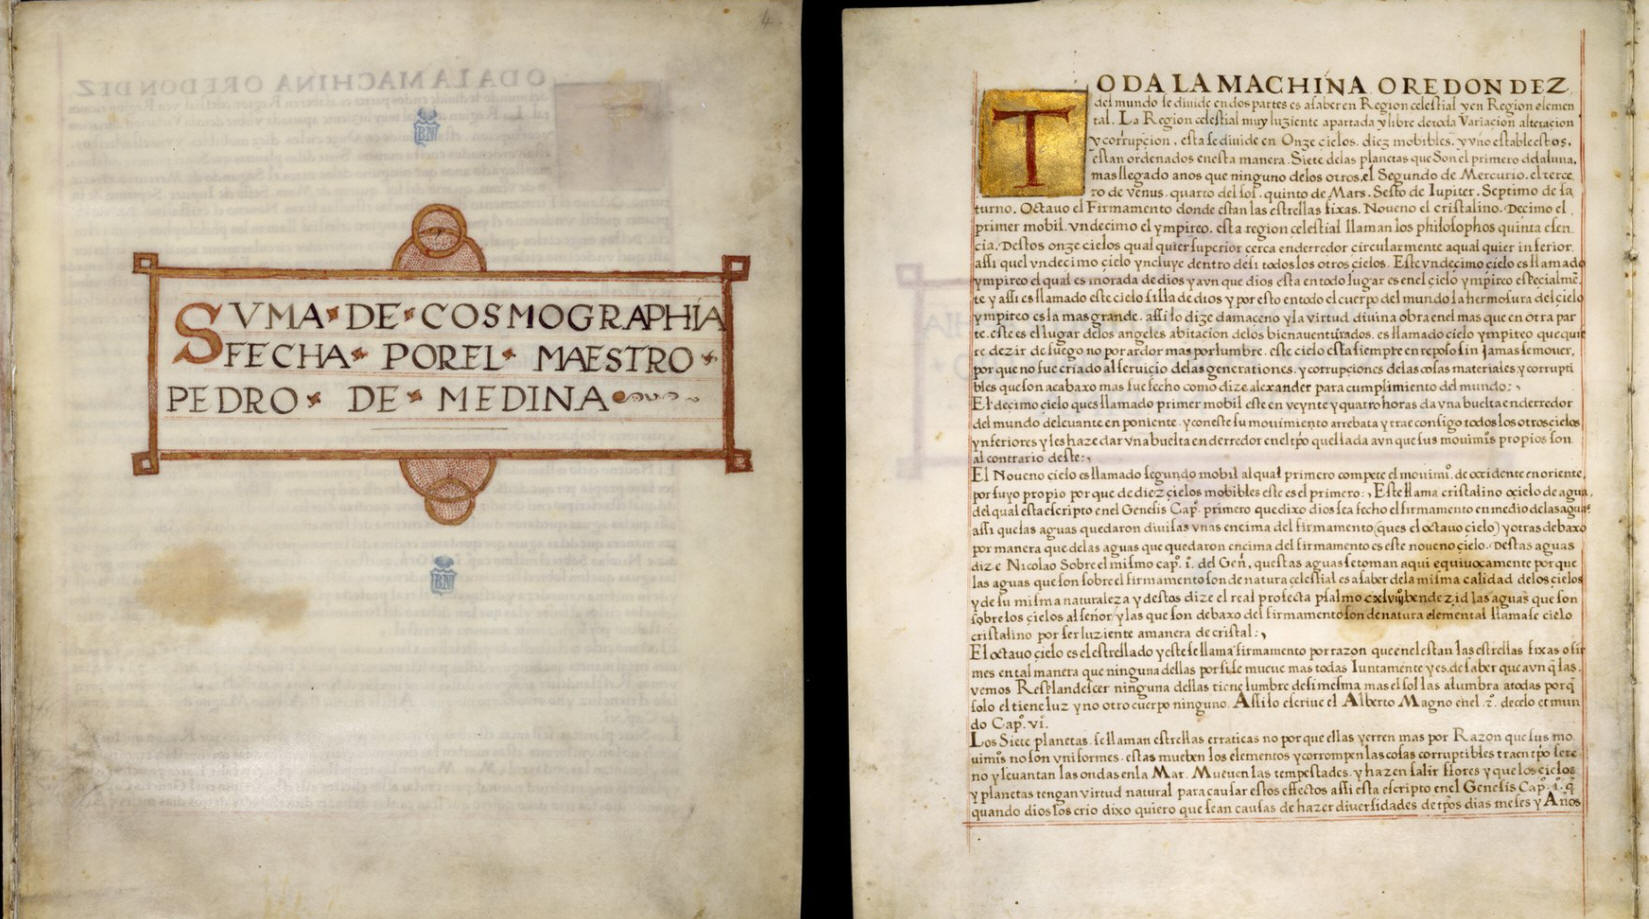 4
BN
SVMA DE COSMOGRAPHIA
FECHA POR EL MAESTRO
PEDRO DE MEDINA
BN
TODA LA MACHINA O REDONDEZ
del mundo se diuide en dos partes es a saber en Region celestial y en Region elemen
tal. La Region celestial muy luziente apartada y libre de toda Variacion alteracion
y corrupcion. esta se diuide en Onze cielos. diez mobibles. y vno estable estos,
estan ordenados en esta manera. Siete de las planetas que Son el primero dela luna,
mas llegado a nos que ninguno de los otros. el Segundo de Mercurio. el terce
ro de venus. quarto del sol. quinto de Mars. Sesto de Iupiter. Septimo de sa
turno. Octauo el Firmamento donde estan las estrellas fixas. Noueno el cristalino. Decimo el
primer mobil. vndecimo el ympireo. esta region celestial llaman los philosophos quinta esen
cia. Destos onze cielos qual quier superior cerca en derredor circularmente a qual quier inferior.
assi quel vndecimo cielo yncluye dentro de si todos los otros cielos. Este vndecimo cielo es llamado
ympireo el qual es morada de dios y avn que dios esta en todo lugar es en el cielo ympireo especialmẽ
te y assi es llamado este cielo silla de dios y por esto en todo el cuerpo del mundo la hermosura del cielo
ympireo es la mas grande. assi lo dize damaceno y la virtud diuina obra en el mas que en otra par
te. este es el lugar de los angeles abitacion de los bienauenturados. es llamado cielo ympireo que quie
re dezir de fuego no por ardor mas por lumbre. este cielo esta siempre en reposo sin jamas se mouer,
por que no fue criado al seruicio de las generationes. y corrupciones de las cosas materiales y corrupti
bles que son aca baxo mas fue fecho como dize alexander para cumplimiento del mundo:
El decimo cielo ques llamado primer mobil este en veynte y quatro horas da vna buelta en derredor
del mundo de leuante en poniente. y con este su mouimiento arrebata y trae consigo todos los otros cielos
ynferiores y les haze dar vna buelta en derredor en el tpo quel la da avn que sus mouimis propios son
al contrario deste:
El Noueno cielo es llamado segundo mobil al qual primero compete el mouimi. de occidente en oriente,
por suyo propio por que de diez cielos mobibles este es el primero: Este llama cristalino o cielo de agua,
del qual esta escripto en el Genesis Capº. primero que dixo dios sea fecho el firmamento en medio de las aguas
assi que las aguas quedaron diuisas vnas encima del firmamento (ques el octauo cielo) y otras debaxo
por manera que de las aguas que quedaron encima del firmamento es este noueno cielo. Destas aguas
dize Nicolao Sobre el mismo capº. i. del Gen, questas aguas se toman aqui equiuocamente por que
las aguas que son sobre el firmamento son de natura celestial es a saber de la misma calidad de los cielos
y de su misma naturaleza y destos dize el real profecta psalmo cxlviij bendezid las aguas que son
sobre los cielos al señor y las que son debaxo del firmamento son de natura elemental llamase cielo
cristalino por ser luziente a manera de cristal:
El octauo cielo es el estrellado y este se llama firmamento por razon que en el estan las estrellas fixas o fir
mes en tal manera que ninguna dellas por si se mueue mas todas Iuntamente y es de saber que avn q̃ las
vemos Resplandescer ninguna dellas tiene lumbre de si mesma mas el sol las alumbra a todas porq̃
solo el tiene luz y no otro cuerpo ninguno. Assi lo escriue el Alberto Magno en el .2º. de celo et mun
do Capº. vi.
Los Siete planetas. se llaman estrellas erraticas no por que ellas yerren mas por Razon que sus mo
uimis no son vniformes. estas mueben los elementos y corrompen las cosas corruptibles traen tpo sere
no y leuantan las ondas en la Mar. Mueuen las tempestades. y hazen salir flores y que los cielos
y planetas tengan virtud natural para causar estos effectos assi esta escripto en el Genesis Capº. i. q̃
quando dios los crio dixo quiero que sean causas de hazer diuersidades de tpos dias meses y Años